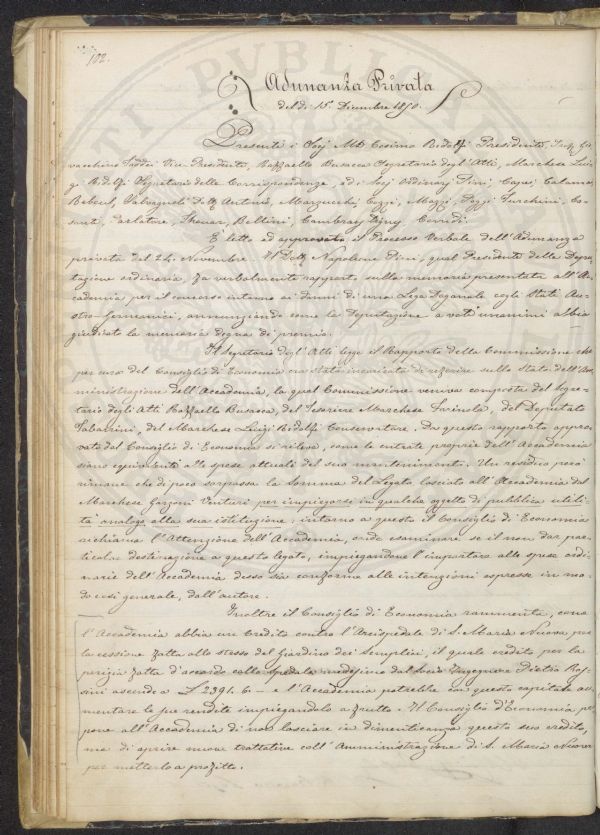 102.
Adunanza Privata
del dì 15. Dicembre 1850.
Presenti i Socj Mse Cosimo Ridolfi Presidente, Ing. Gio-
vacchino Taddei Vice-Presidente, Raffaello Busacca Segretario degl'Atti, Marchese Lui-
gi Ridolfi Segretario delle Corrispondenze, ed i Socj Ordinarj Pini, Capei, Calamai,
Bechi, Salvagnoli Dott. Antonio, Marzucchi, Cozzi, Mazzi, Pozzi, Turchini, Co-
santi, Parlatore, Thouar, Bellini, Cambray Digny, Corridi.
È letto ed approvato il Processo Verbale dell'Adunanza
privata del 24. Novembre. Il Dott. Napoleone Pini, qual Presidente della Depu-
tazione ordinaria, fa verbalmente rapporto sulla memoria presentata all'Ac-
cademia per il concorso intorno ai danni di una Lega Doganale cogli Stati Au-
stro-Germanici, annunziando come la Deputazione a voti unanimi abbia
giudicato la memoria degna di premio.
Il Segretario degl'Atti legge il Rapporto della Commissione che
per cura del Consiglio di Economia era stata incaricata di riferire sullo Stato dell'Am-
ministrazione dell'Accademia, la qual Commissione veniva composta del Segre-
tario degli Atti Raffaello Busacca, del Tesoriere Marchese Farinola, del Deputato
Tabarrini, del Marchese Luigi Ridolfi Conservatore. Da questo rapporto appro-
vato dal Consiglio di Economia si rileva, come le entrate proprie dell'Accademia
siano equivalenti alle spese attuali del suo mantenimento. Un residuo però
rimane che di poco sorpassa la somma del Legato lasciato all'Accademia dal
Marchese Garzoni Venturi per impiegarsi in qualche oggetto di pubblica utili-
tà analogo alla sua istituzione; intorno a questo il Consiglio di Economia
richiama l'Attenzione dell'Accademia, onde esaminare se il non dar par-
ticolar destinazione a questo legato, impiegandone l'importare alle spese ordi-
narie dell'Accademia desso sia conforme alle intenzioni espresse in mo-
do così generale, dall'autore.
Inoltre il Consiglio di Economia rammenta, come
l'Accademia abbia un Credito contro l'Arcispedale di S. Maria Nuova per
la cessione fatta allo stesso del Giardino dei Semplici, il quale credito per la
perizia fatta d'accordo collo spedale medesimo dal Socio Ingegnere Pietro Ros-
sini ascende a £ 2391. 6 — e l'Accademia potrebbe con questo capitale au-
mentare le sue rendite impiegandolo a frutto. Il Consiglio d'Economia pro-
pone all'Accademia di non lasciare in dimenticanza questo suo credito,
ma di aprire nuove trattative coll'Amministrazione di S. Maria Nuova
per metterlo a profitto.